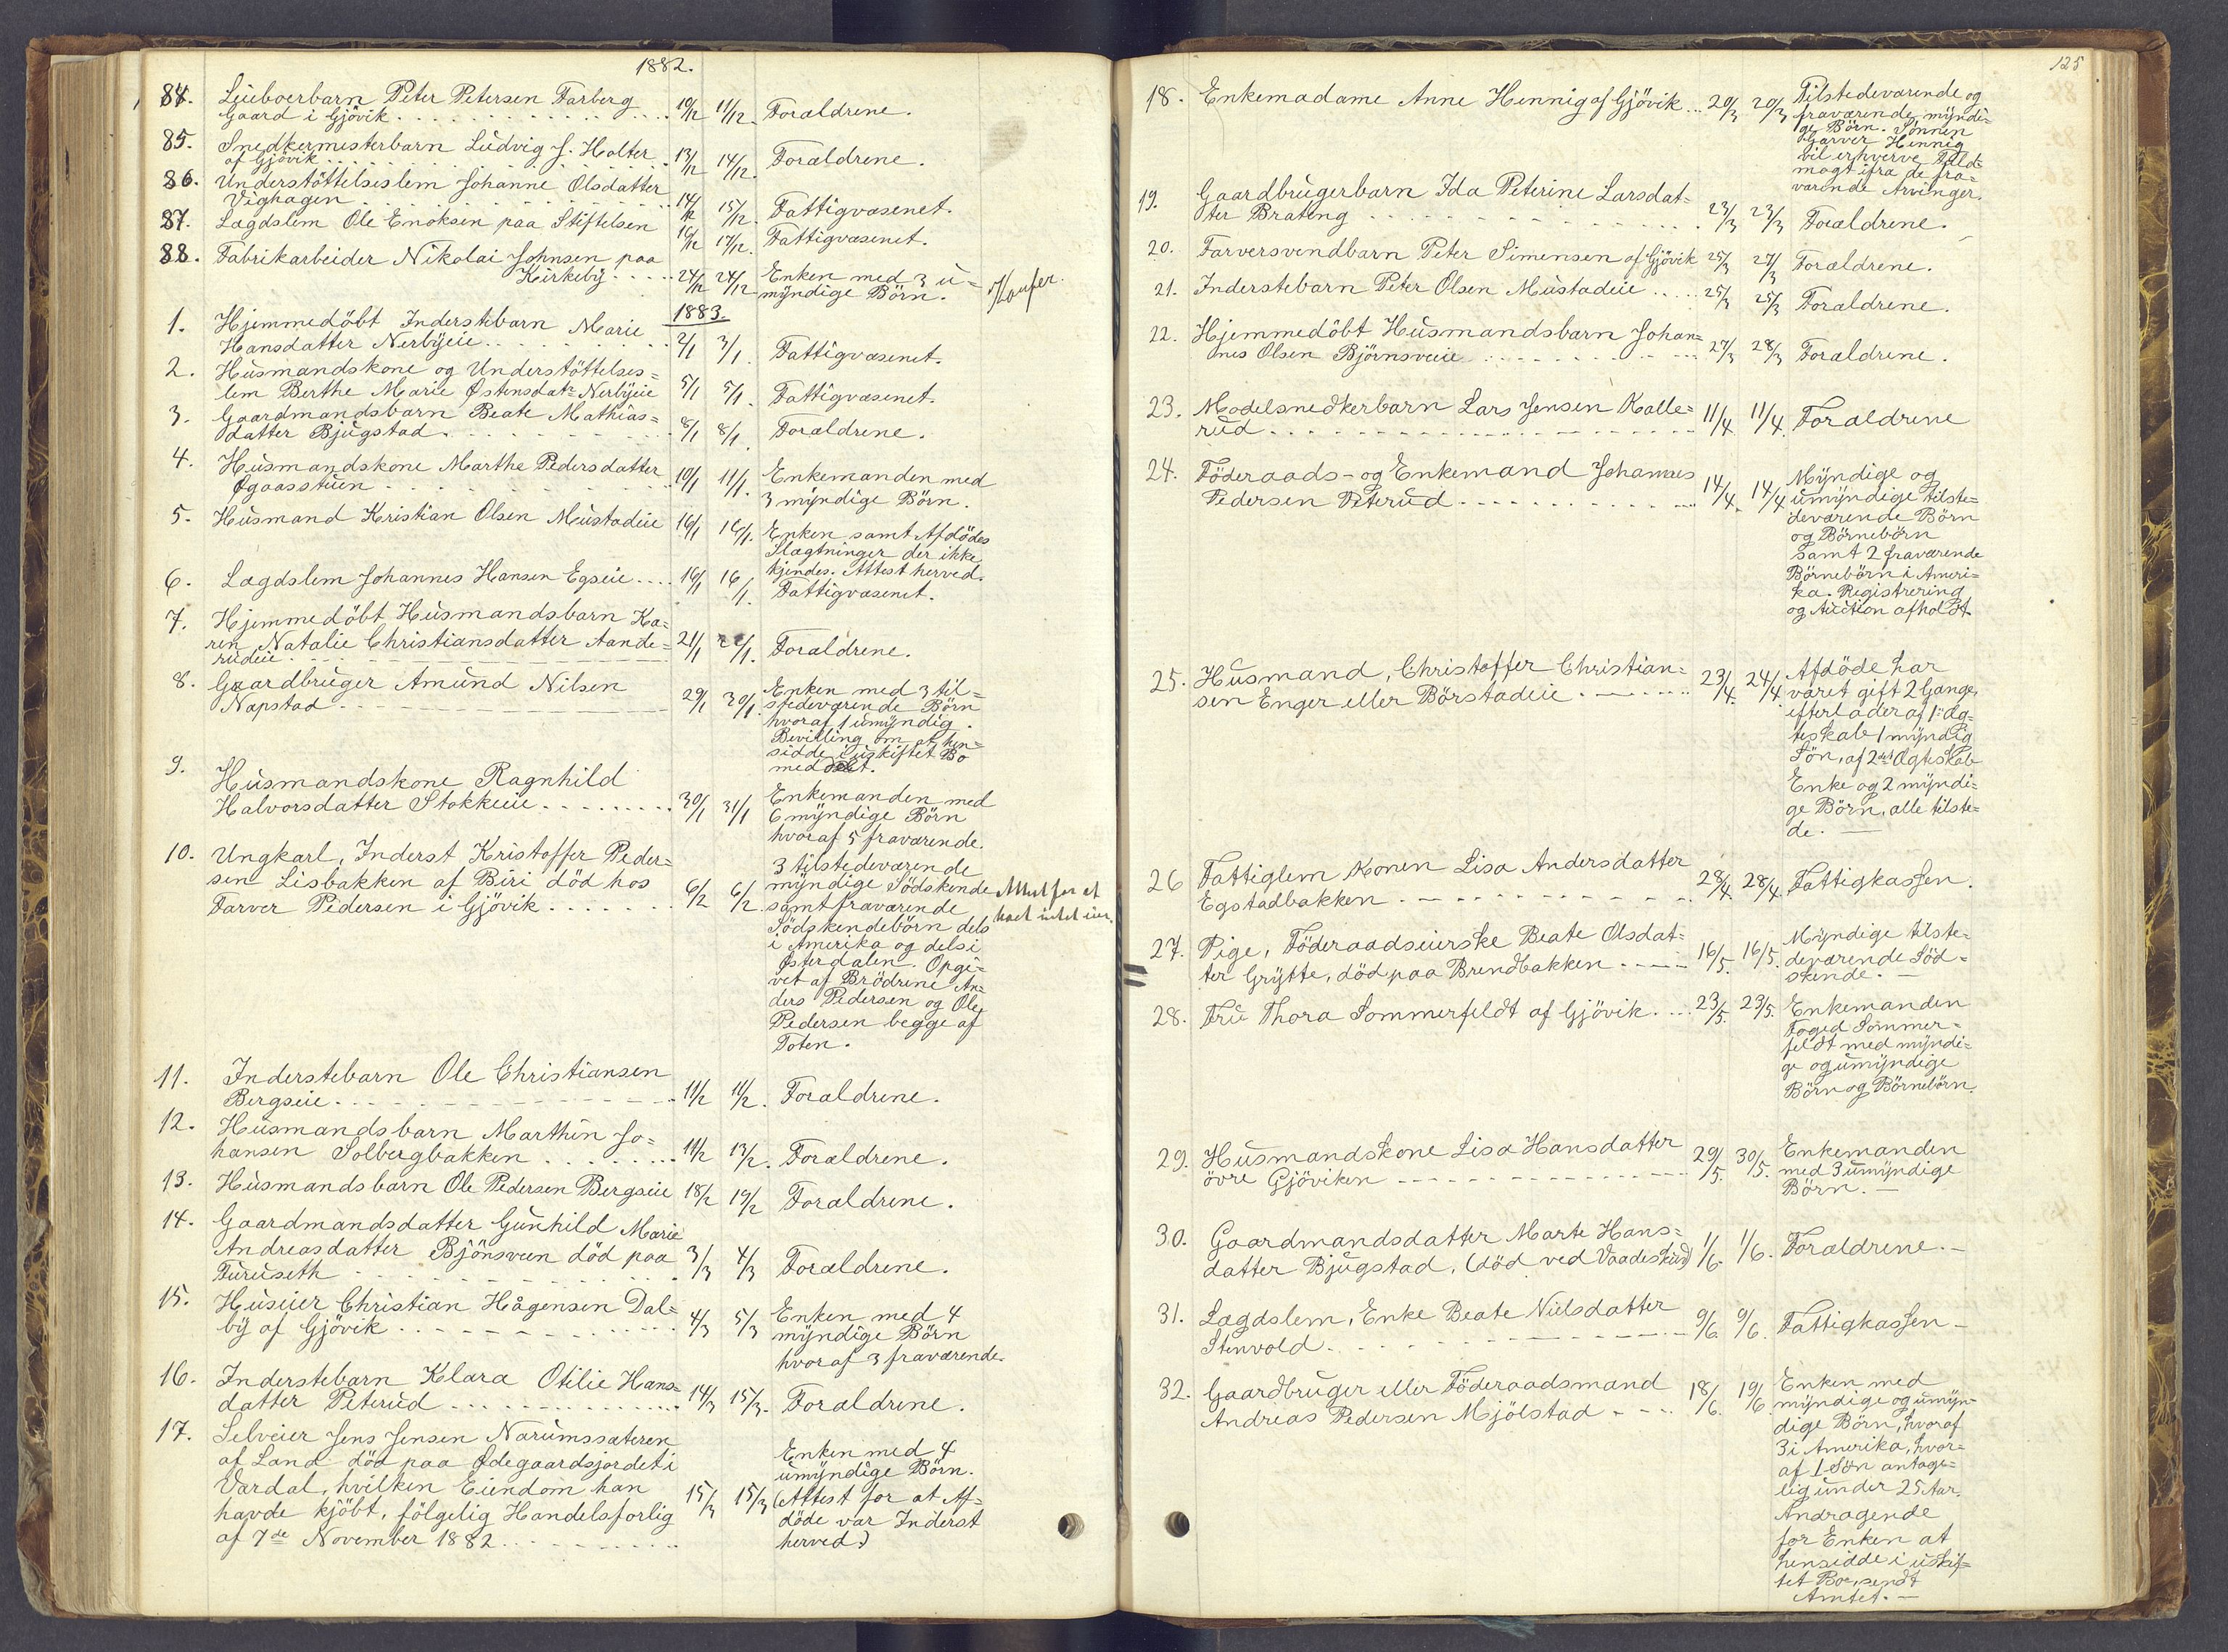 1882.
84. Leieboerbarn Peter Petersen Farberg
Gaard i Gjövik 10/12 11/12 Forældrene.
85. Snedkermesterbarn Ludvig J. Holter
af Gjövik 13/12 14/12. Forældrene.
86. Understöttelseslem Johanne Olsdatter
Vighagen 14/12 15/12. Fattigvæsenet.
87. Lægdslem Ole Enoksen paa Stiftelsen 16/12 17/12. Fattigvæsenet.
88. Fabrikarbeider Nikolai Johnsen paa
Kirkeby 24/12 24/12 Enken med 3 u=
myndige Börn.
1883.
1. Hjemmedöbt Inderstebarn Marie
Hansdatter Nerbyeie 2/1 3/1. Fattigvæsenet.
2. Husmandskone og Understöttelses=
lem Berthe Marie Østensdatr Nerbyeie 5/1 5/1. Fattigvæsenet.
3. Gaardmandsbarn Beate Mathias=
datter Bjugstad 8/1 8/1. Forældrene.
4. Husmandskone Marthe Pedersdatter
Øgaasstuen 10/1 11/1. Enkemanden med
3 myndige Börn.
5. Husmand Kristian Olsen Mustadeie 16/1 16/1. Enken samt Afdödes
Slægtninger der ikke
kjendes. Attest herved.
6. Lægdslem Johannes Hansen Egseie 16/1 16/1. Fattigvæsenet.
7. Hjemmedöbt Husmandsbarn Ka=
ren Natalie Christiansdatter Aande=
rudeie 21/1 22/1. Forældrene.
8. Gaardbruger Amund Nilsen
Napstad 29/1 30/1. Enken med 3 til=
stedeværende Börn
hvoraf 1 umyndig.
Bevilling om at hen=
sidde i uskiftet Bo
meddelt.
9. Husmandskone Ragnhild
Halvorsdatter Stokkeeie 30/1 31/1 Enkemanden med
6 myndige Börn
hvoraf 5 fraværende.
10. Ungkarl, Inderst Kristoffer Peder=
sen Lisbakken af Biri död hos
Farver Pedersen i Gjövik 6/2 6/2. 3 tilstedeværende
myndige Södskende
samt fraværende
Södskendebörn dels
i Amerika og dels i
Østerdalen. Opgi=
vet af Brödrene An=
ders Pedersen og Ole
Pedersen begge af
Toten.
11. Inderstebarn Ole Christiansen
Bergseie 11/2 11/2. Forældrene.
12. Husmandsbarn Marthin Jo=
hansen Solbergbakken 11/2 13/2. Forældrene.
13. Husmandsbarn Ole Pedersen Bergseie 18/2 19/2 Forældrene.
14. Gaardmandsdatter Gunhild Marie
Andreasdatter Bjönsveen död paa
Furuseth 3/3 4/3 Forældrene.
15. Huseier Christian Hågensen Dal=
by af Gjövik 4/3 5/3 Enken med 4
myndige Börn
hvoraf 3 fraværende.
16. Inderstebarn Klara Otilie Hans=
datter Peterud 14/3 15/3. Forældrene.
17. Selveier Jens Jensen Narumssæteren
af Land död paa Ødegaardsjordet i
Vardal, hvilken Eiendom han
havde kjöbt, fölgelig Handelsforlig
af 7de November 1882 15/3 15/3 Enken med 4
umyndige Börn.
(Attest for at Af=
döde var Inderst
herved)
125
18. Enkemadame Anne Hennig af Gjövik 20/3 20/3 Tilstedeværende og
fraværende myndi=
ge Börn. Sönnen
Garver Hennig
vil erhverve Fuld=
magt ifra de fra=
værende Arvinger.
19. Gaardbrugerbarn Ida Peterine Larsdat=
ter Brateng 23/3 23/3 Forældrene.
20. Farversvendbarn Peter Simensen af Gjövik 25/3 27/3 Forældrene.
21. Inderstebarn Peter Olsen Mustadeie 25/3 25/3 Forældrene.
22. Hjemmedöbt Husmandsbarn Johan=
nes Olsen Björnsveeie 27/3 28/3 Forældrene.
23. Modelsnedkerbarn Lars Jensen Kalle=
rud 11/4 11/4. Forældrene
24. Föderaads- og Enkemand Johannes
Pedersen Peterud 14/4. 14/4 Myndige og
umyndige tilste=
deværende Börn
og Börnebörn
samt 2 fraværende
Börnebörn i Ameri=
ka. Registrering
og Auction afholdt
25. Husmand, Christoffer Christian=
sen Enger eller Börstadeie 23/4. 24/4 Afdöde har
været gift 2 Gange,
efterlader af 1ste Æg=
teskab 1 myndig
Sön, af 2det Ægteskab
Enke og 2 myndi=
ge Börn, alle tilste=
de.
26 Fattiglem Konen Lisa Andersdatter
Egstadbakken 28/4. 28/4. Fattigkassen.
27. Pige, Föderaadseierske Beate Olsdat=
ter Grytte, död paa Brendbakken 16/5. 16/5. Myndige tilste=
deværende Söd=
skende.
28. Fru Thora Sommerfeldt af Gjövik. 23/5. 23/5. Enkemanden
Foged Sommer=
feldt med myndi=
ge og umyndige
Börn og Börnebörn.
29. Husmandskone Lisa Hansdatter
övre Gjöviken 29/5. 30/5. Enkemanden
med 3 umyndige
Börn.
30. Gaardmandsdatter Marte Hans=
datter Bjugstad, (död ved Vaadeskud) 1/6. 1/6. Forældrene.
31. Lægdslem, Enke Beate Nielsdatter
Stenvold 9/6. 9/6. Fattigkassen
32. Gaardbruger eller Föderaadsmand
Andreas Pedersen Mjölstad 18/6. 19/6. Enken med
myndige og umyn=
dige Börn, hvoraf
3 i Amerika, hvor=
af 1 Sön antage=
lig under 25 Aar.
Andragende
for Enken at
hensidde i uskif=
tet Bo, sendt
Amtet.